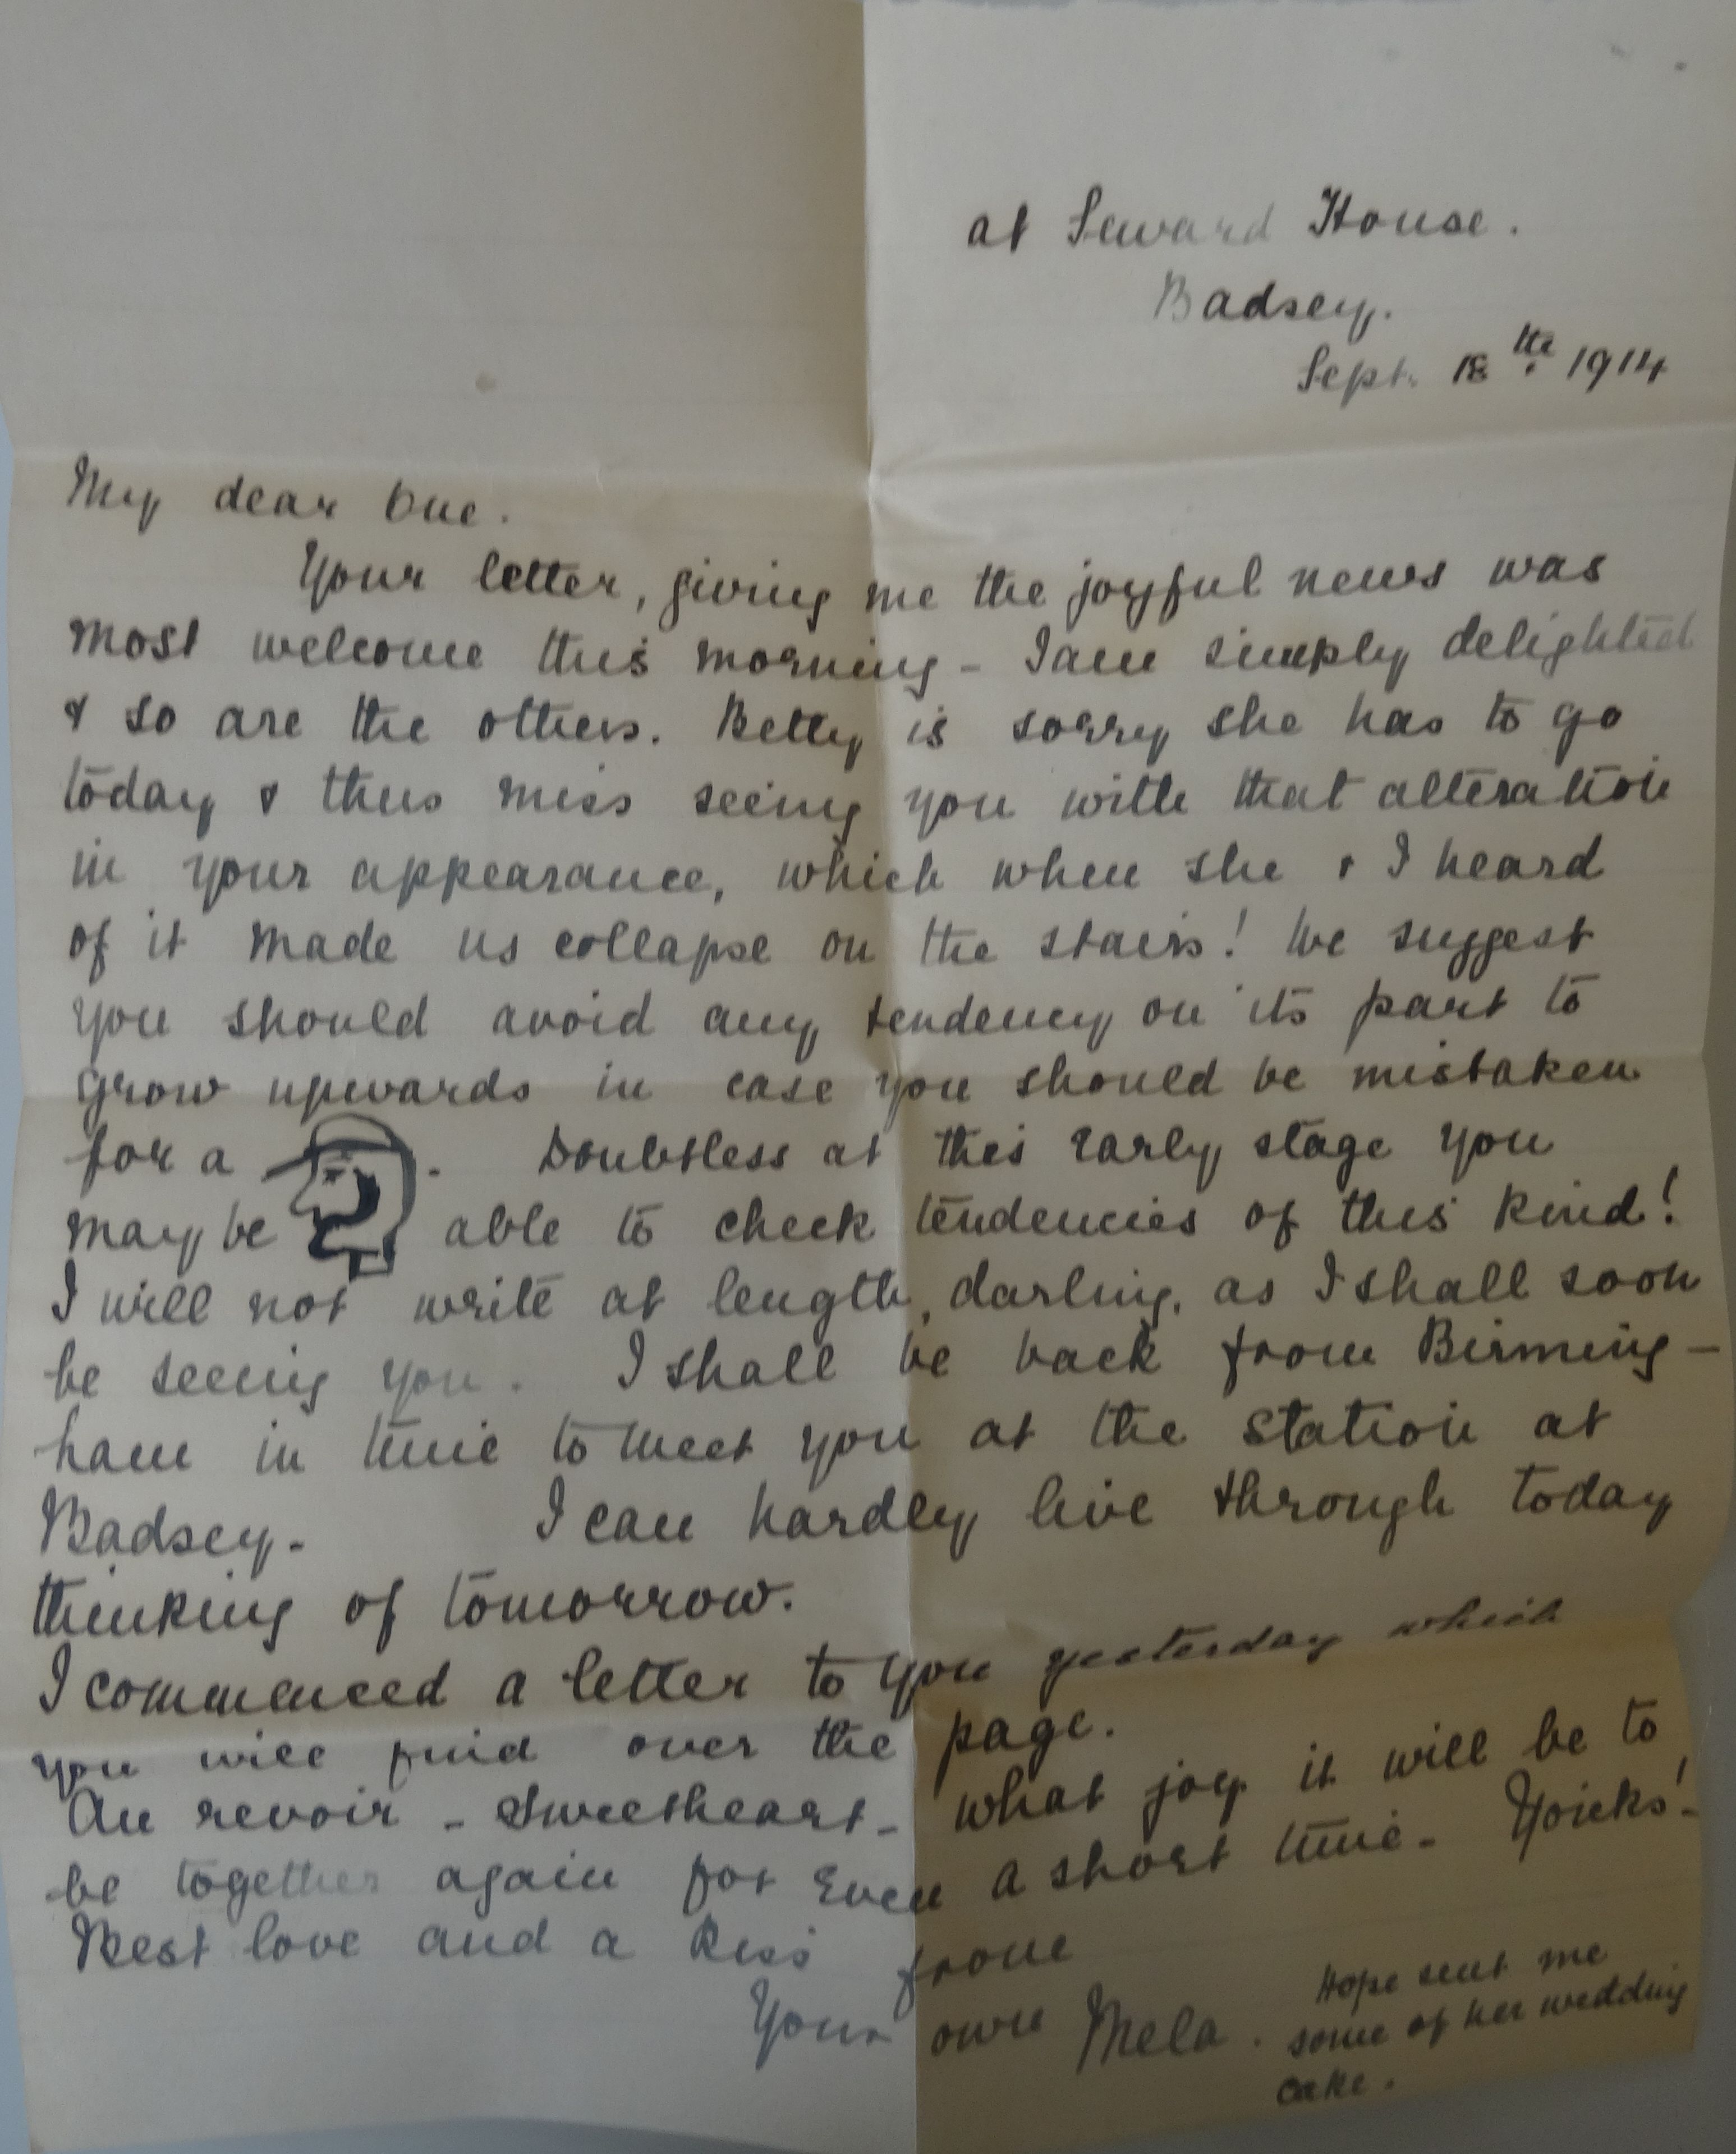 at Seward House.
Badsey.
Sept. 18th. 1914
My dear One.
Your letter, giving me the joyful news was
most welcome this morning - I am simply delighted
& so are the others. Betty is sorry she has to go
today & thus miss seeing you with that alteration
in your appearance, which when she & I heard
of it made us collapse on the stairs! We suggest
you should avoid any tendency on its part to
grow upwards in case you should be mistaken
for a . Doubtless at this early stage you
may be able to check tendencies of this kind!
I will not write at length, darling, as I shall soon
be seeing you. I shall be back from Birming-
ham in time to meet you at the station at
Badsey. I can hardly live through today
thinking of tomorrow.
I commenced a letter to you yesterday which
you will find over the page.
Au revoir - Sweetheart - what joy it will be to
be together again for even a short time - Yoicks!
Best love and a kiss from
Your own Mela.
Hope sent me
some of her wedding
cake.